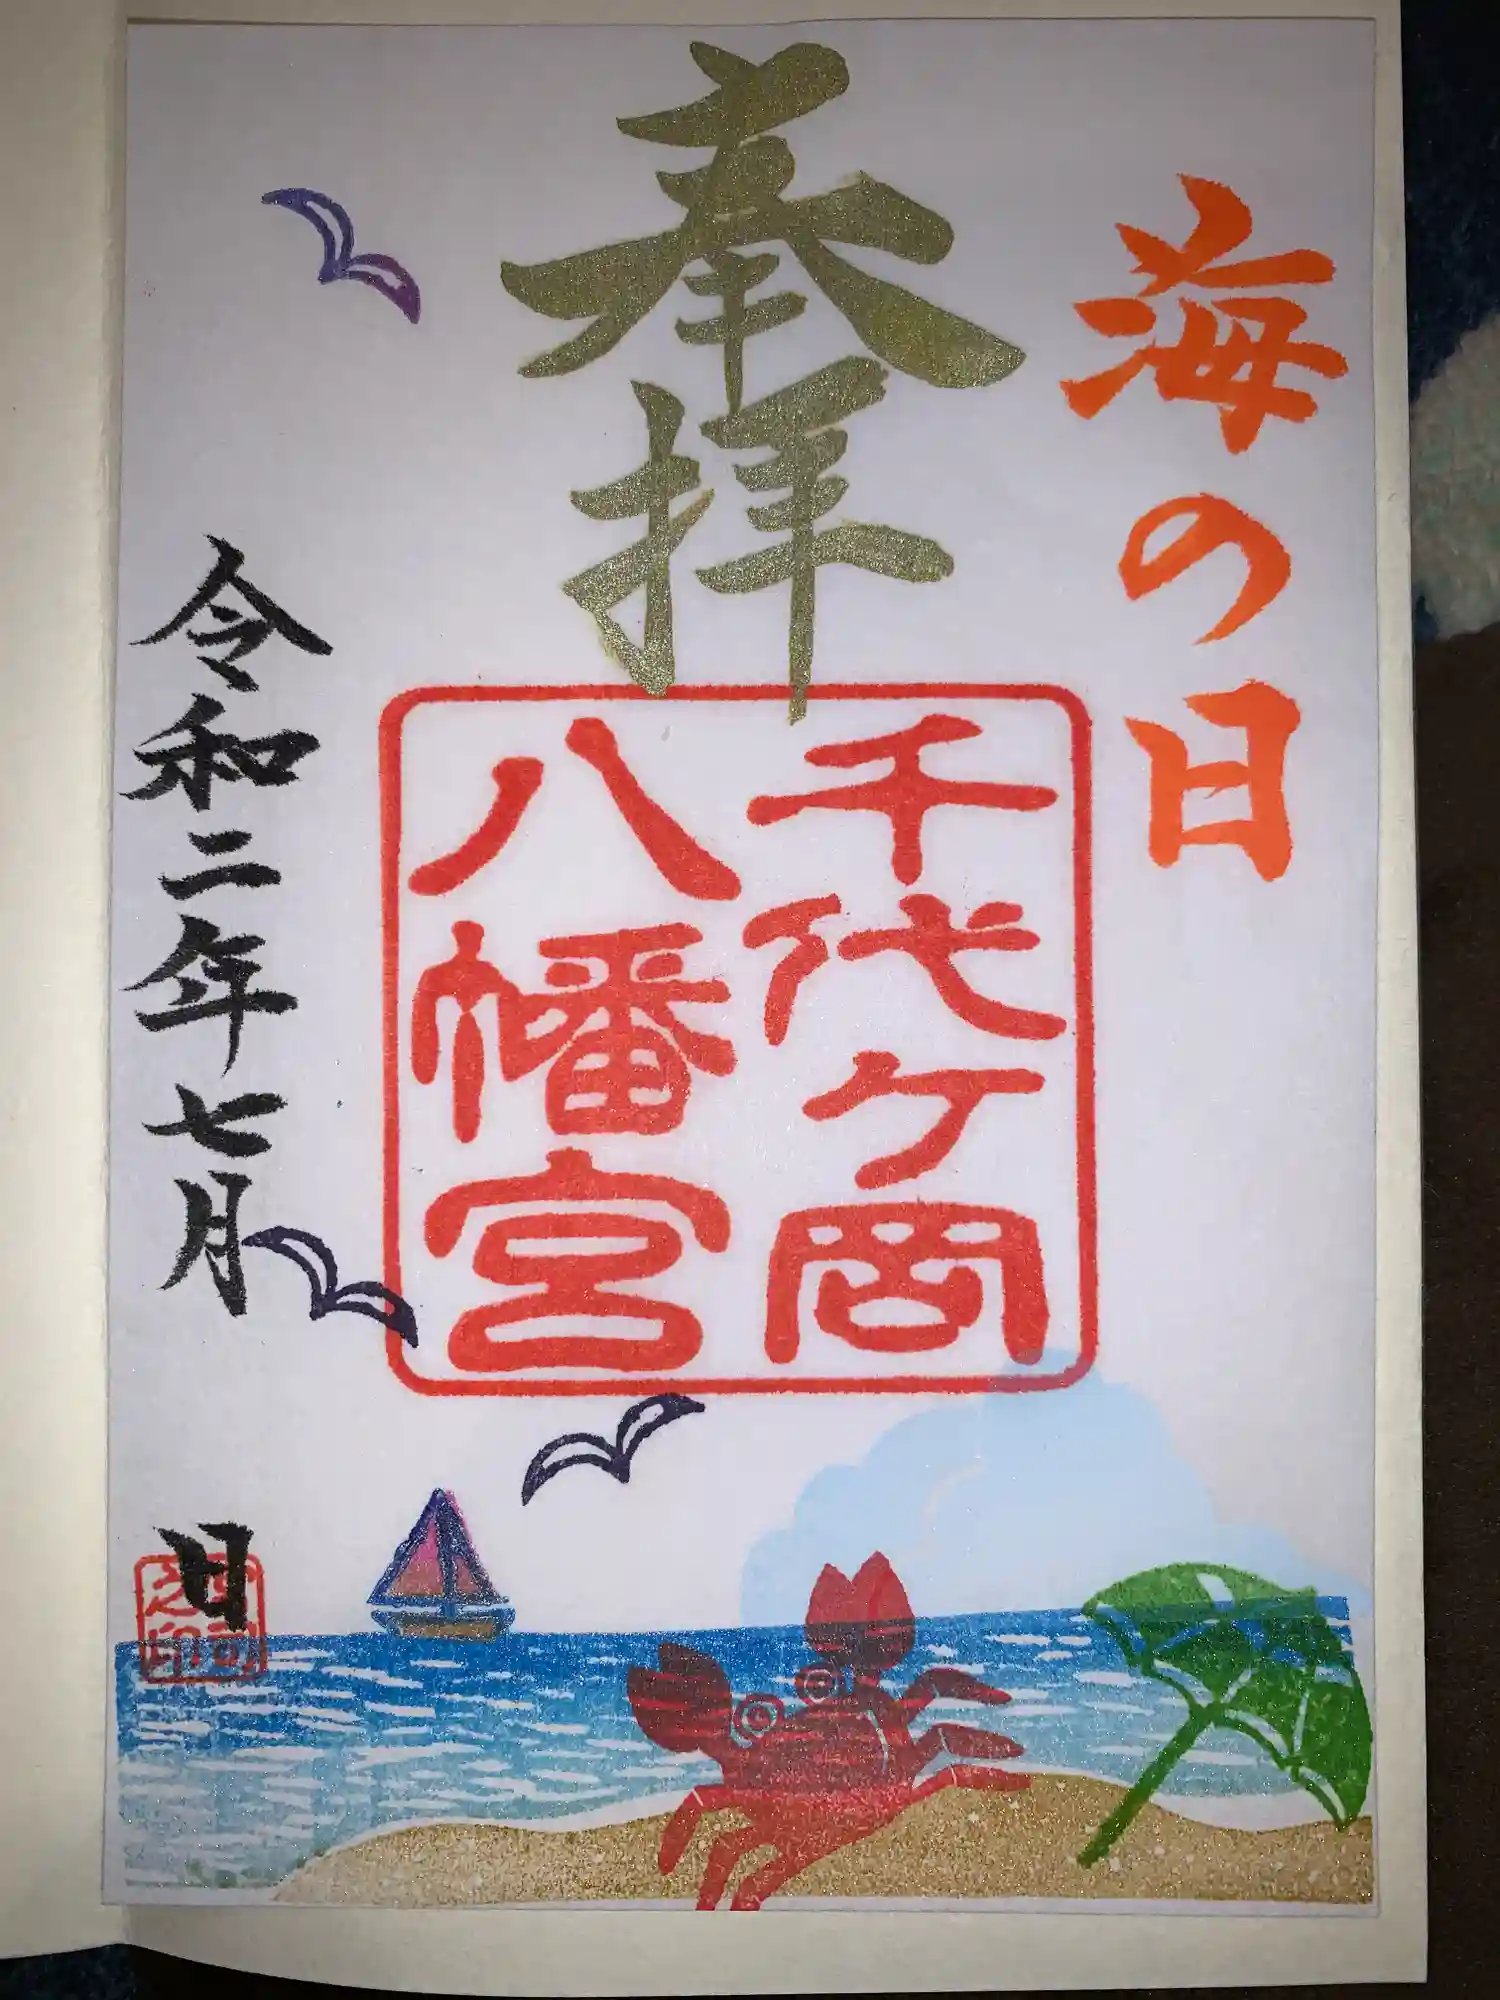 海の日
奉拝
千代ヶ岡
八幡宮
令和二年七月 日